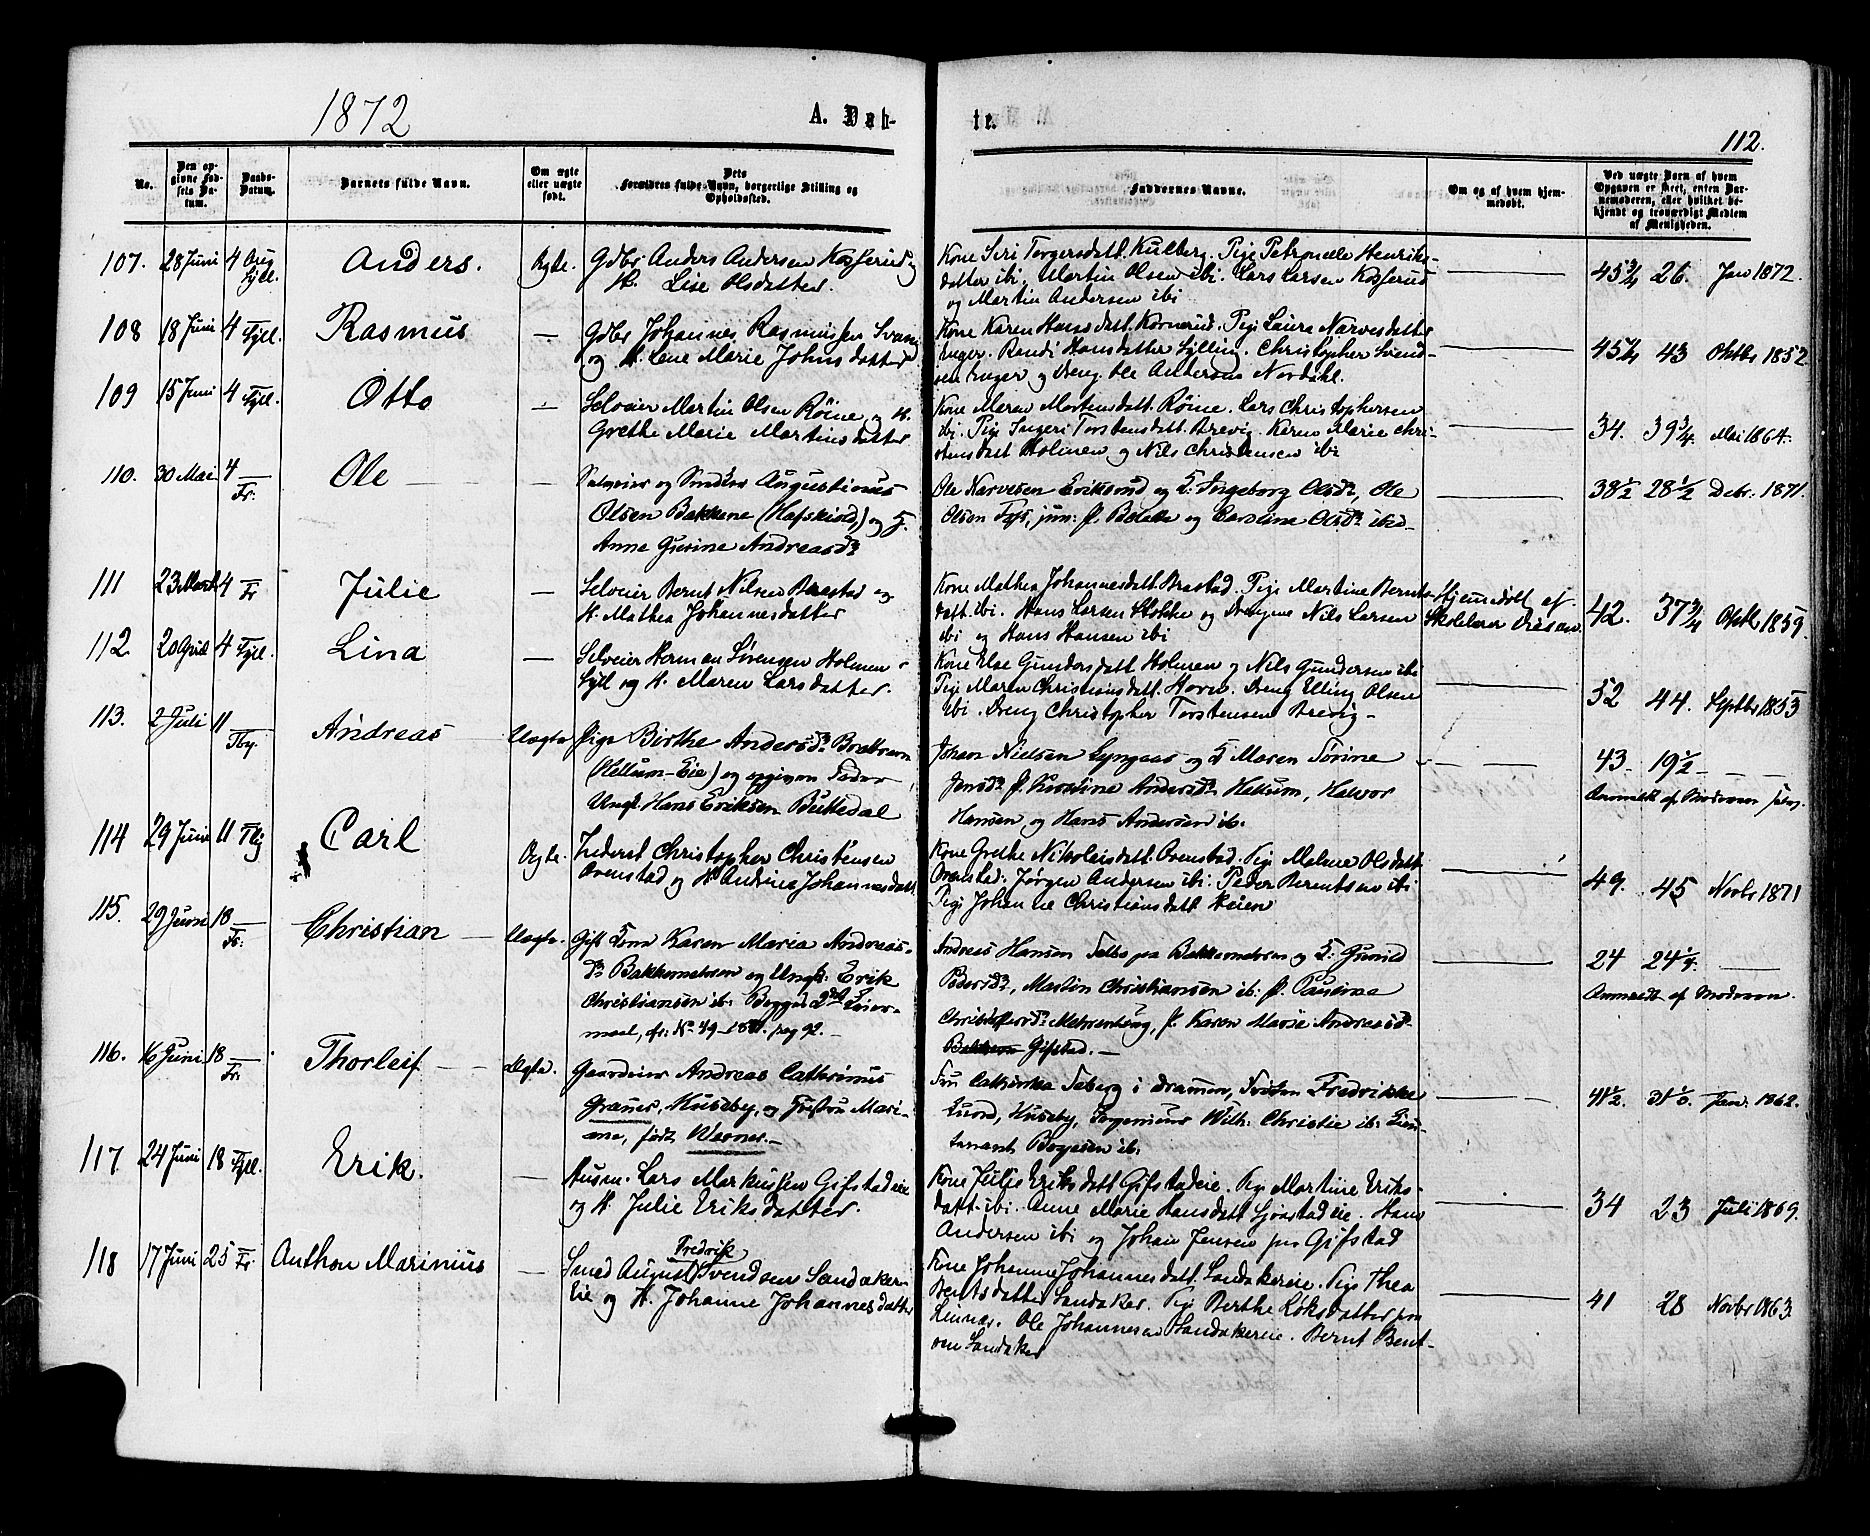 1872
A. Døb-
te.
112.
No.
Den opgivne Fødsels Datum.
Daabs-Datum.
Barnets fulde Navn.
Om ægte eller uægte født.
Dets Forældres fulde Navn, borgerlige Stilling og Opholdssted.
Faddernes Navne.
Om og af hvem hjemmedøbt.
Ved uægte Barn af hvem Opgaven er skeet, enten Barnemoderen, eller hvilket bekjendt og troværdigt Medlem af Menigheden.
107. 28 Juni 4 Aug Syll. Anders. Ægte. Gdbr Anders Andersen Kosserud og
H. Lise Olsdatter.
Kone Siri Torgersdatt. Kulberg. Pige Petronelle Henriks-
datter ibi. Martin Olsen ibi. Lars Larsen Kosserud
og Martin Andersen ibi
45 3/4 26. Jan 1872.
108 18 Juni 4 Syll. Rasmus — Gdbr Johannes Rasmussen
og H. Lene Marie Johnsdatter
Kone Karen Hansdatt. Kornerud. Pige Laura Narvesdatter
Enger. Randi Hansdatter Sylling. Christopher Svend-
sen Enger og Dreng Ole Andersen Nordahl.
43 Oktbr 1852.
109 15 Juni 4 Syll. Otto — Selveier Martin Olsen Röine og H.
Grethe Marie Martinsdatter
Kone Maren Mortensdatt. Röine. Lars Christophersen
ibi. Pige Ingeri Torstensdatt. Brevig. Karen Marie Chri-
stensdatt Holmen og Nils Christensen ibi
34. 39 3/4. Mai 1864.
110. 30 Mai 4 Fr. Ole — Selveier og Augustinus
Olsen Bakkene (Hafskiold,) og H.
Anne Gurine Andreasdr
Ole Narvesen Eriksrud og H. Ingeborg Olsdr, Ole
Olsen jun: P. og Caroline Olsdr ibid.
38 1/2 28 1/2 Debr. 1871.
111 23 Marts 4 Fr Julie — Selveier Bernt Nilsen Brastad og
H. Mathea Johannesdatter
Kone Mathea Johannesdatt. Brastad. Pige Martine Bernts-
datt. ibi. Hans Larsen Stokke og Drengene Nils Larsen
ibi og Hans Hansen ibi
Hjemmedøbt af
Skolelærer
42. 37 3/4 Oktb 1859.
112. 20 April 4 Syll. Lina — Selveier Herman Sörensen Holmen i
Syll og H. Maren Larsdatter.
Kone Else Gundersdatt. Holmen og Nils Gundersen ibi
Pige Maren Christiansdatt. Horn. Dreng Elling Olsen
ibi. Dreng Christopher Torstensen Brevig —
52 44. Septbr 1853
113. 2 Juli 11 Tby. Andreas Uægte Pige Birthe Andersdr
(Hellum-Eie) og opgiven Fader
Ungk. Hans Eriksen Buttedal
Johan Nielsen Lyngaas og H Maren Torine
Jensdr P. Kirstine Andersdr Hellum, Halvor
Hansen, og Hans Andersen ib.
43 19 1/2
Anmeldt af Moderen
114 29 Juni 11 Tby Carl Ægte. Inderst Christopher Christensen
Ovenstad og H Andrine Johannesdatt.
Kone Grethe Nikolaisdatt. Ovenstad. Pige Malene Olsdatt.
Ovenstad. Jørgen Andersen ibi. Peder Berentsen ibi
Pige Johanne Christiansdatt. Heien
49. 45 Novbr 1871
115. 29 Juni 18 Fr. Christian Uægte. Gift Kone Karen Maria Andreas-
dr og Ungk: Erik
Christiansen ib. Begges 2det Leier-
maal, No 49-1871. pag 92.
Andreas Hansen og H. Gunild
Pedersdr, Martin Christiansen ib: P. Pauline
P. Karen Marie Andreasdr
Gifstad. —
24 24 1/4
Anmeldt af Moderen.
116. 16 Juni 18 Fr. Thorleif Ægte. Gaardeier Andreas Cathrinus
Grønes, Huseby, og Hustru Mari-
ne, født Werner. —
Fru Cathinka Seberg i Drammen, Frøken Fredrikke
Huseby, Ingenieur Wilh: Christie ib: Lieu-
tenant Bogesen ib:
41 1/2. Jan: 1862.
117. 24 Juni 18 Syll. Erik. — Husm. Lars Markussen Gifstadeie
og H. Julie Eriksdatter.
Kone Julie Eriksdatt. Gifstadeie. Pige Martine Eriks-
datt. ibi. Anne Marie Hansdatt Hans
Andersen ibi og Johan Jensen Gifstad
34 23 Juli 1869.
118 17 Juni 25 Fr. Anthon Marinius — Smed August Fredrik Svendsen Sandaker-
Eie og H. Johanne Johannesdatter
Kone Johanne Johannesdatt. Sandakereie. Pige Thea
Berntsdatter Sandaker. Pige Berthe
Ole Johannesen Sandakereie. Bernt Bent-
sen Sandaker
41 28 Novbr 1863.